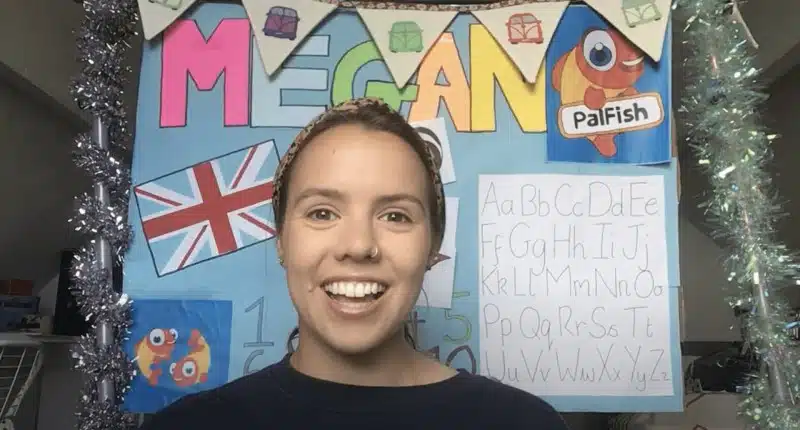 MEGAN
PalFish
Aa Bb Cc Dd Ee
Ff Gg Hh Ii Jj
Kk Ll Mm Nn Oo
Pp Qq Rr Ss Tt
Uu Vv Ww Xx Yy Zz
1
5
10